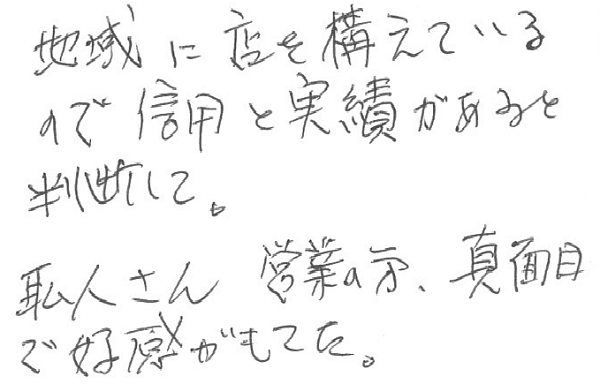 地域に店を構えている
ので信用と実績があると
判断して。
職人さん 営業の方、真面目
で好感がもてた。